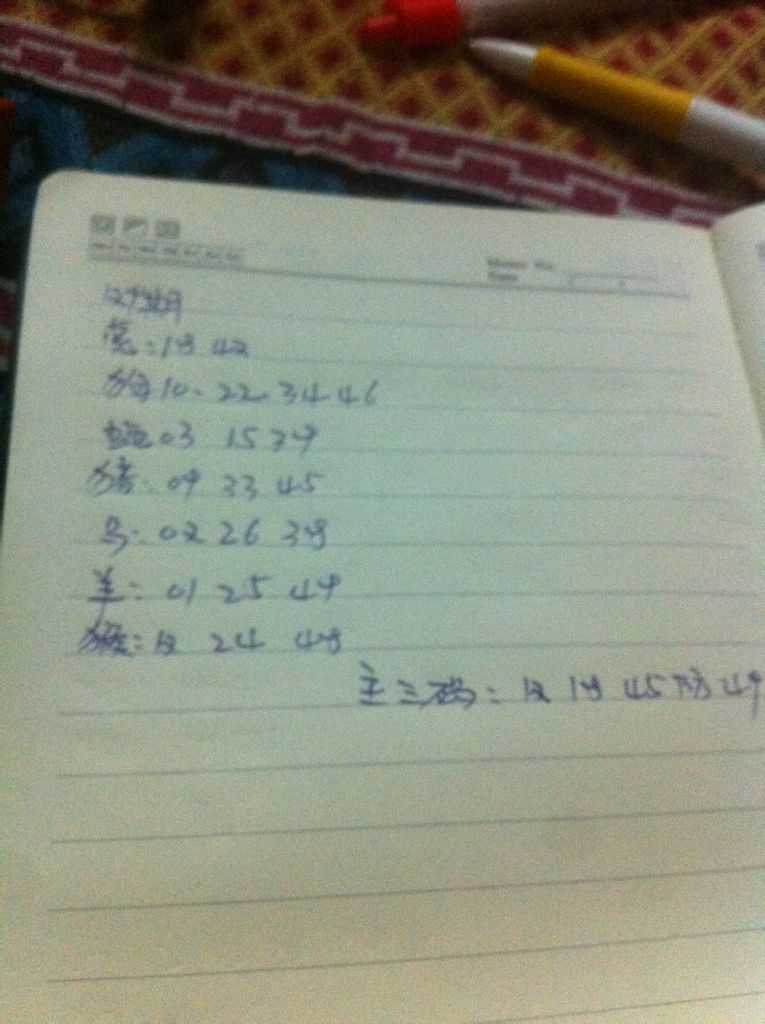 虎:18 42
狗10. 22 34 46
蛇03 15 39
猪:09 33 45
马:02 26 38
羊:01 25 49
猴:12 24 48
主三码:12 18 45 防49